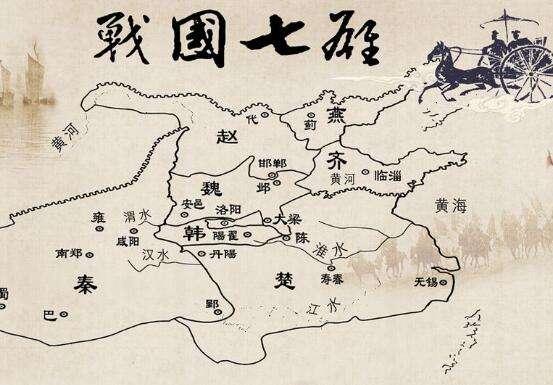 戰國七雄
燕
代
蓟
赵
黄河
邯郸
齐
魏
邺
黄河
临淄
安邑
洛阳
大梁
黄海
雍
渭水
韩
陽翟
陈
咸阳
淮水
南郑
汉水
丹陽
秦
楚
寿春
无锡
蜀
巴
郢
江水